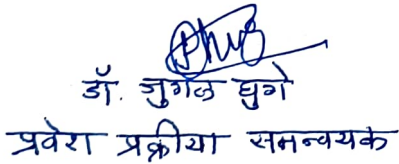 डॉ. जुगल घुगे
प्रवेश प्रक्रीया समन्वयक